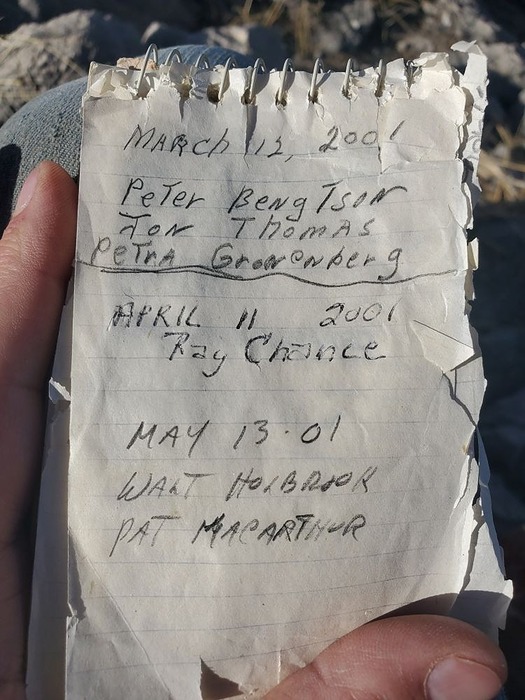 MARCH 12, 2001
PETER BENGTSON
JON THOMAS
PETRA GRONENBERG
APRIL 11 2001
Ray Chance
MAY 13·01
WALT HOLBROOK
PAT MACARTHUR